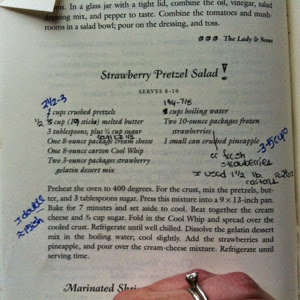 ens. In a glass jar with a tight lid, combine the oil, vinegar, salad
dressing mix, and pepper to taste. Combine the tomatoes and mush-
rooms in a salad bowl; pour on the dressing, and toss.
The Lady & Sons
Strawberry Pretzel Salad !
SERVES 8–10
cups crushed pretzels
cup ( sticks) melted butter
3 tablespoons, plus ¾ cup sugar
One 8-ounce package cream cheese
One 8-ounce carton Cool Whip
Two 3-ounce packages strawberry
gelatin dessert mix
cups boiling water
Two 10-ounce packages frozen
strawberries
1 small can crushed pineapple
or fresh
strawberries
I used 1 ½ lb
I double
Preheat the oven to 400 degrees. For the crust, mix the pretzels, but-
ter, and 3 tablespoons sugar. Press this mixture into a 9 × 13-inch pan.
Bake for 7 minutes and set aside to cool. Beat together the cream
cheese and ¾ cup sugar. Fold in the Cool Whip and spread over the
cooled crust. Refrigerate until well chilled. Dissolve the gelatin dessert
mix in the boiling water; cool slightly. Add the strawberries and
pineapple, and pour over the cream-cheese mixture. Refrigerate until
serving time.
Marinated Shri